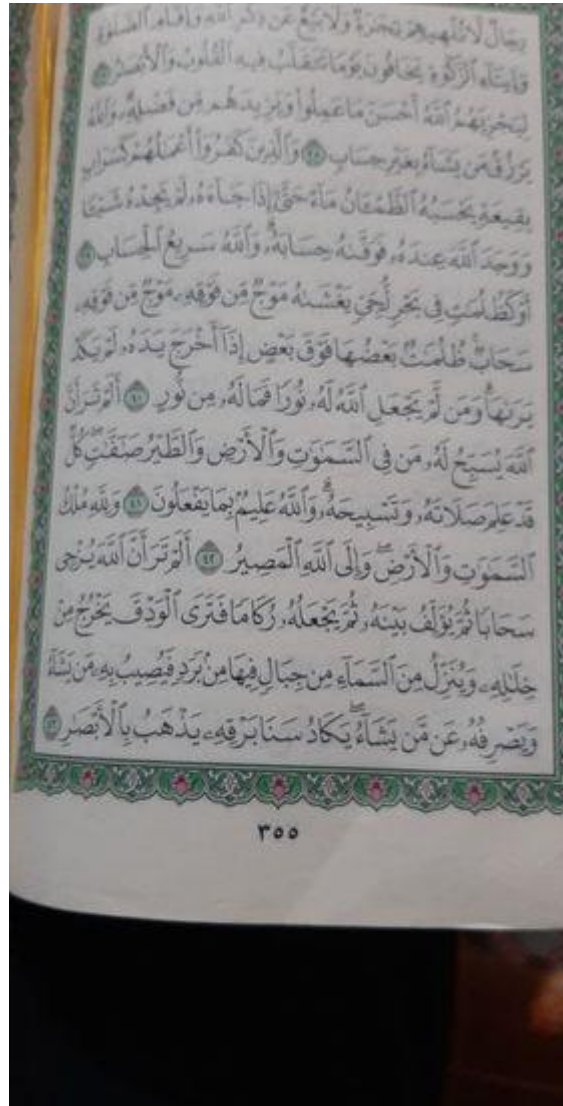 رِجَالٌ لَّا تُلْهِيهِمْ تِجَٰرَةٌ وَلَا بَيْعٌ عَن ذِكْرِ ٱللَّهِ وَإِقَامِ ٱلصَّلَوٰةِ
وَإِيتَآءِ ٱلزَّكَوٰةِ يَخَافُونَ يَوْمًا تَتَقَلَّبُ فِيهِ ٱلْقُلُوبُ وَٱلْأَبْصَٰرُ ٣٧
لِيَجْزِيَهُمُ ٱللَّهُ أَحْسَنَ مَا عَمِلُوا۟ وَيَزِيدَهُم مِّن فَضْلِهِۦ وَٱللَّهُ
يَرْزُقُ مَن يَشَآءُ بِغَيْرِ حِسَابٍ ٣٨ وَٱلَّذِينَ كَفَرُوٓا۟ أَعْمَٰلُهُمْ كَسَرَابٍ
بِقِيعَةٍ يَحْسَبُهُ ٱلظَّمْـَٔانُ مَآءً حَتَّىٰٓ إِذَا جَآءَهُۥ لَمْ يَجِدْهُ شَيْـًٔا
وَوَجَدَ ٱللَّهَ عِندَهُۥ فَوَفَّىٰهُ حِسَابَهُۥ وَٱللَّهُ سَرِيعُ ٱلْحِسَابِ ٣٩
أَوْ كَظُلُمَٰتٍ فِى بَحْرٍ لُّجِّىٍّ يَغْشَىٰهُ مَوْجٌ مِّن فَوْقِهِۦ مَوْجٌ مِّن فَوْقِهِۦ
سَحَابٌ ظُلُمَٰتٌۢ بَعْضُهَا فَوْقَ بَعْضٍ إِذَآ أَخْرَجَ يَدَهُۥ لَمْ يَكَدْ
يَرَىٰهَا وَمَن لَّمْ يَجْعَلِ ٱللَّهُ لَهُۥ نُورًا فَمَا لَهُۥ مِن نُّورٍ ٤٠ أَلَمْ تَرَ أَنَّ
ٱللَّهَ يُسَبِّحُ لَهُۥ مَن فِى ٱلسَّمَٰوَٰتِ وَٱلْأَرْضِ وَٱلطَّيْرُ صَٰٓفَّٰتٍ كُلٌّ
قَدْ عَلِمَ صَلَاتَهُۥ وَتَسْبِيحَهُۥ وَٱللَّهُ عَلِيمٌۢ بِمَا يَفْعَلُونَ ٤١ وَلِلَّهِ مُلْكُ
ٱلسَّمَٰوَٰتِ وَٱلْأَرْضِ ۖ وَإِلَى ٱللَّهِ ٱلْمَصِيرُ ٤٢ أَلَمْ تَرَ أَنَّ ٱللَّهَ يُزْجِى
سَحَابًا ثُمَّ يُؤَلِّفُ بَيْنَهُۥ ثُمَّ يَجْعَلُهُۥ رُكَامًا فَتَرَى ٱلْوَدْقَ يَخْرُجُ مِنْ
خِلَٰلِهِۦ وَيُنَزِّلُ مِنَ ٱلسَّمَآءِ مِن جِبَالٍ فِيهَا مِنۢ بَرَدٍ فَيُصِيبُ بِهِۦ مَن يَشَآءُ
وَيَصْرِفُهُۥ عَن مَّن يَشَآءُ ۖ يَكَادُ سَنَا بَرْقِهِۦ يَذْهَبُ بِٱلْأَبْصَٰرِ ٤٣
٣٥٥